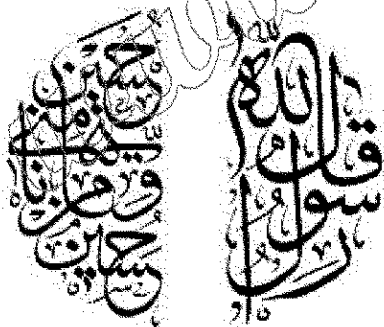 قال رسول الله
حسين مني و انا من حسين